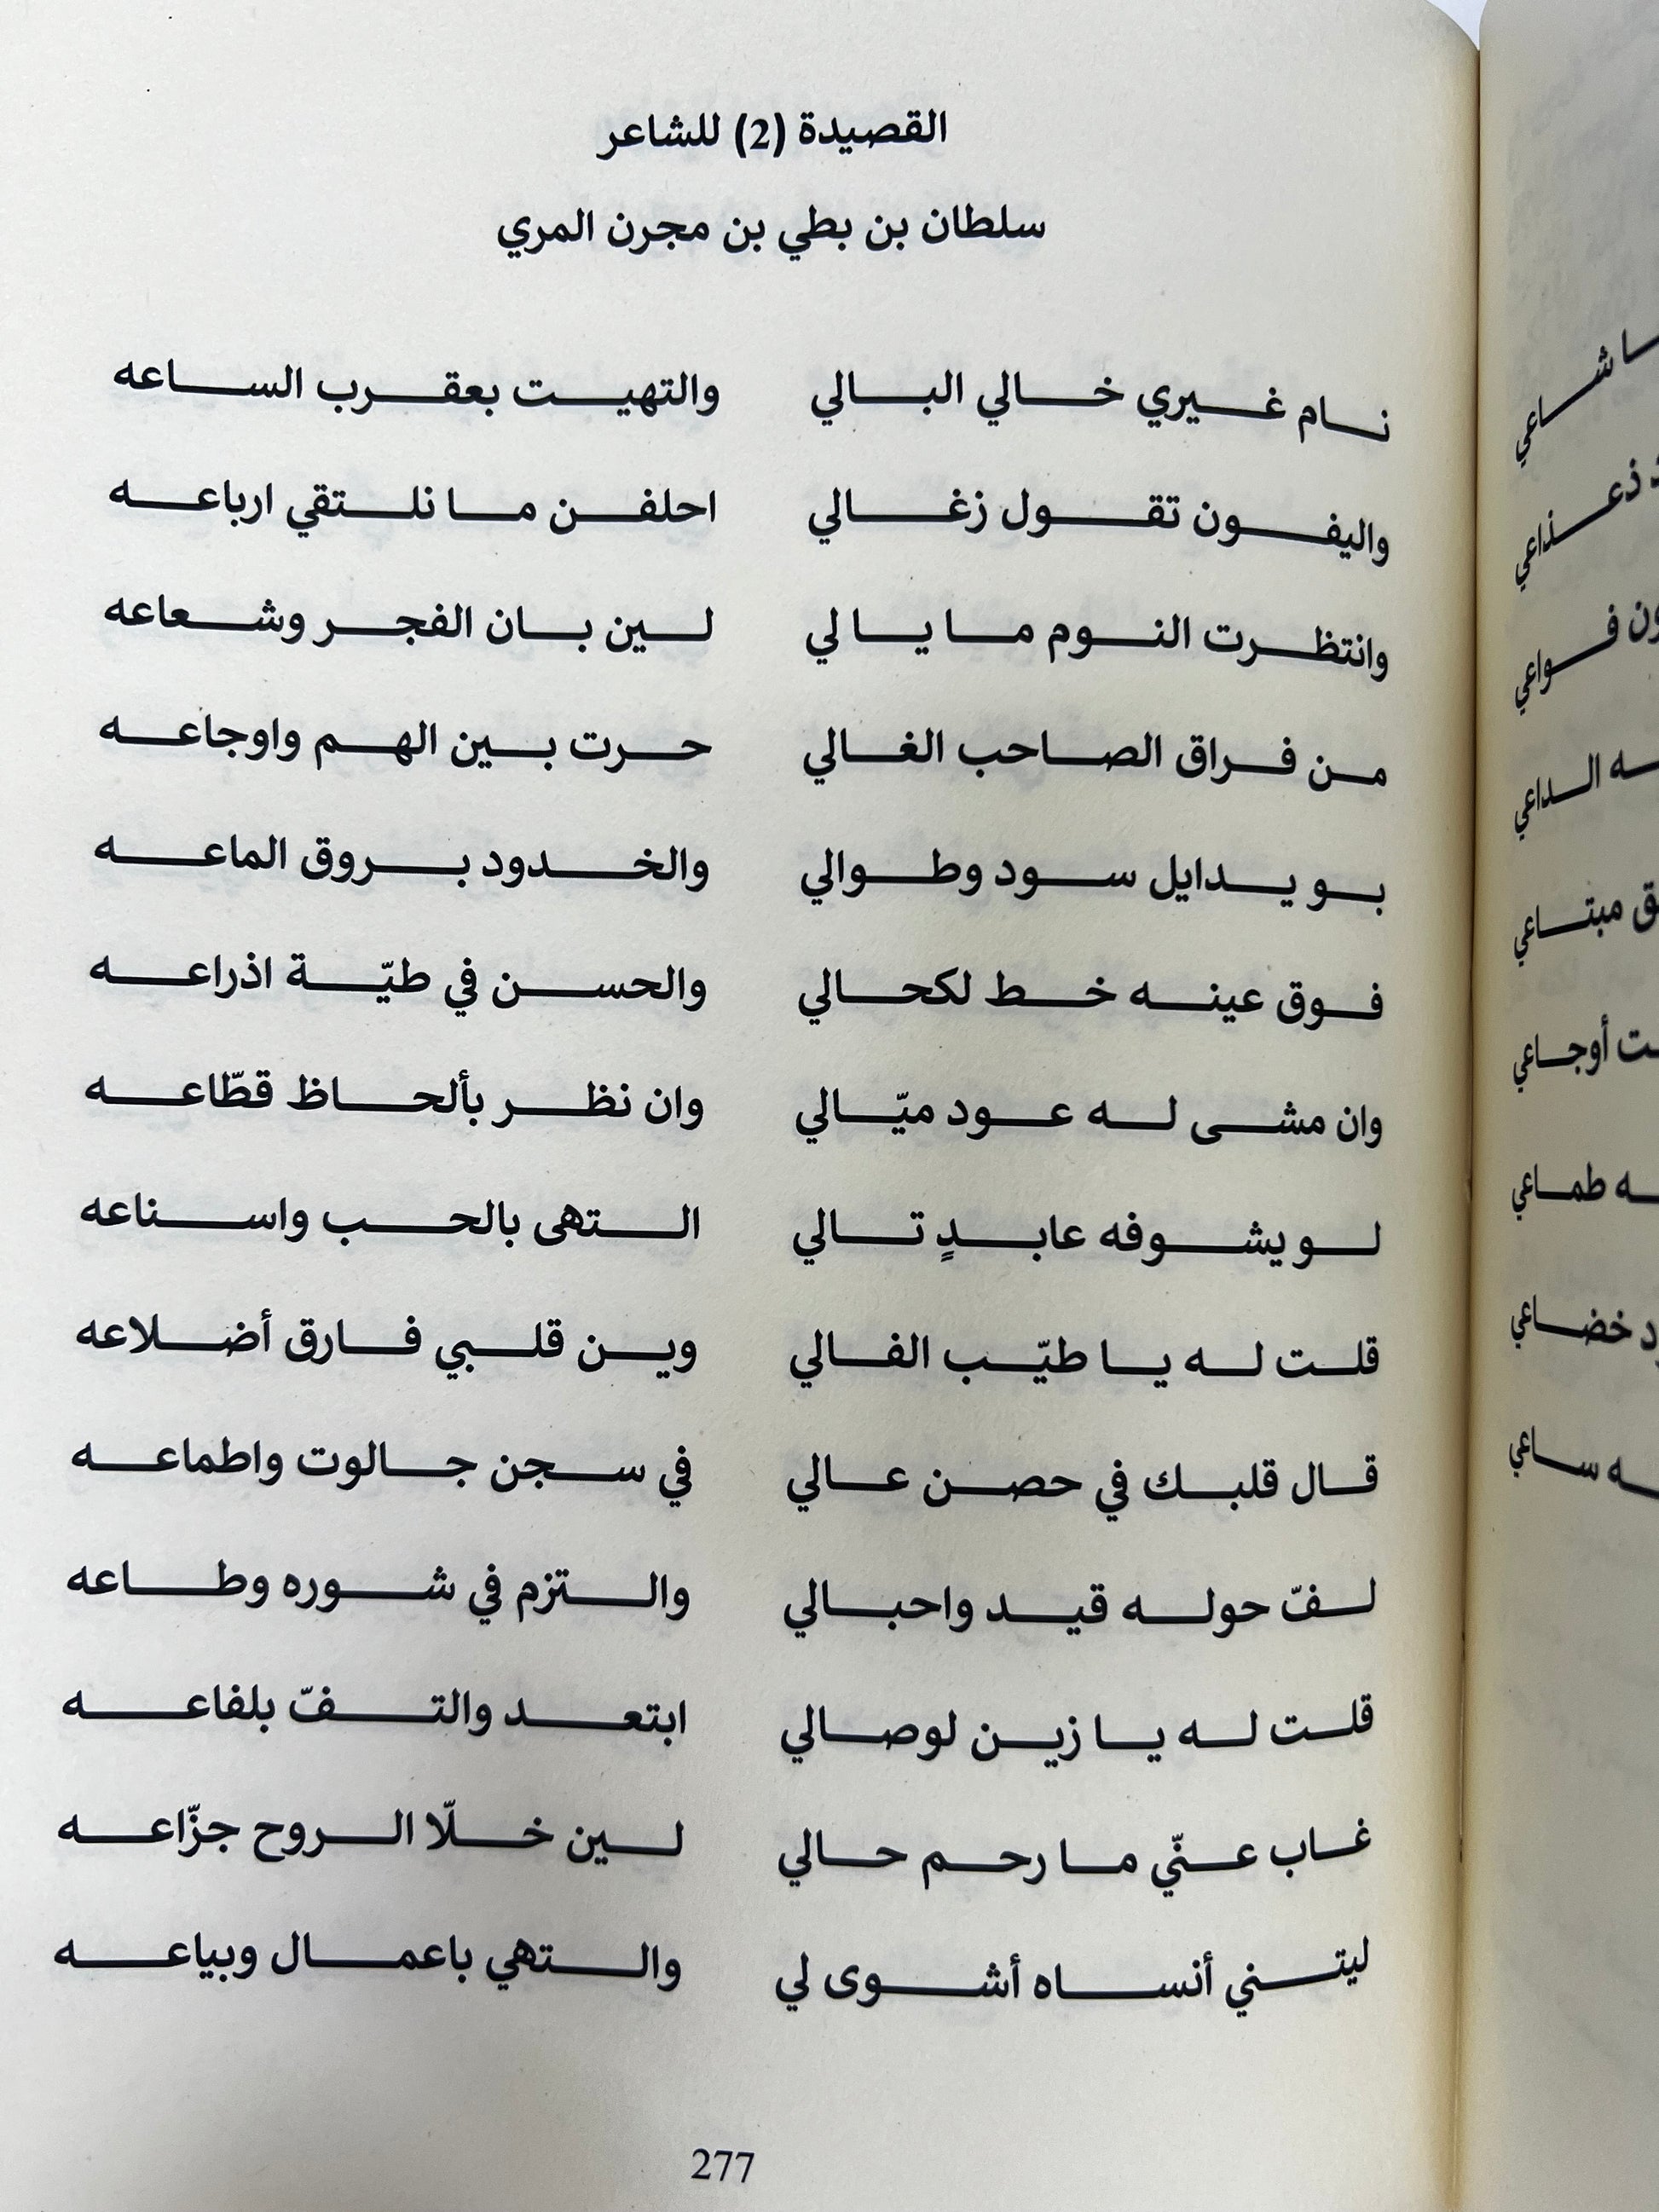 القصيدة (2) للشاعر
سلطان بن بطي بن مجرن المري
نام غيري خالي البالي والتهيت بعقرب الساعه
واليفون تقول زغالي احلفن ما نلتقي ارباعه
وانتظرت النوم ما يا لي لين بان الفجر وشعاعه
من فراق الصاحب الغالي حرت بين الهم واوجاعه
بو يدايل سود وطوالي والخدود بروق الماعه
فوق عينه خط لكحالي والحسن في طيّة اذراعه
وان مشى له عود ميّالي وان نظر بألحاظ قطّاعه
لو يشوفه عابدٍ تالي التهى بالحب واسناعه
قلت له يا طيّب الفالي وين قلبي فارق أضلاعه
قال قلبك في حصن عالي في سجن جالوت واطماعه
لفّ حوله قيد واحبالي والتزم في شوره وطاعه
قلت له يا زين لوصالي ابتعد والتفّ بلفاعه
غاب عنّي ما رحم حالي لين خلّا الروح جزّاعه
ليتني أنساه أشوى لي والتهي باعمال وبياعه
277
شاعي
ذعذاعي
فواعي
الداعي
مبتاعي
أوجاعي
طماعي
خضاعي
ساعي